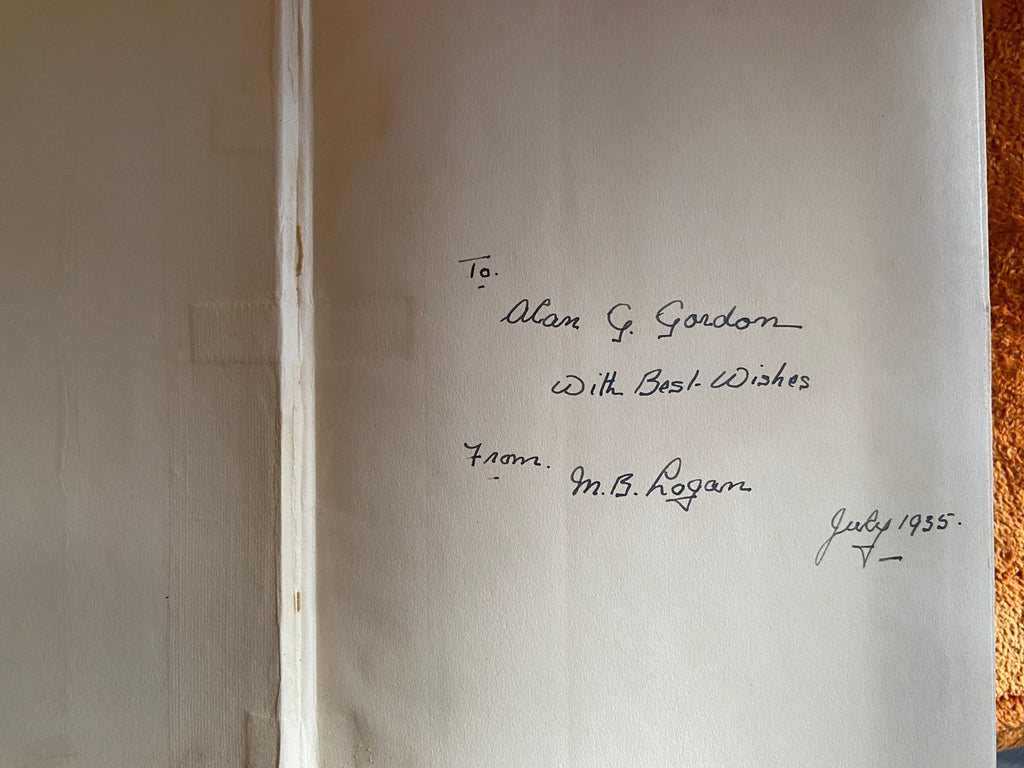 To.
Alan G. Gordon
With Best Wishes
From.
M.B. Logan
July 1935.